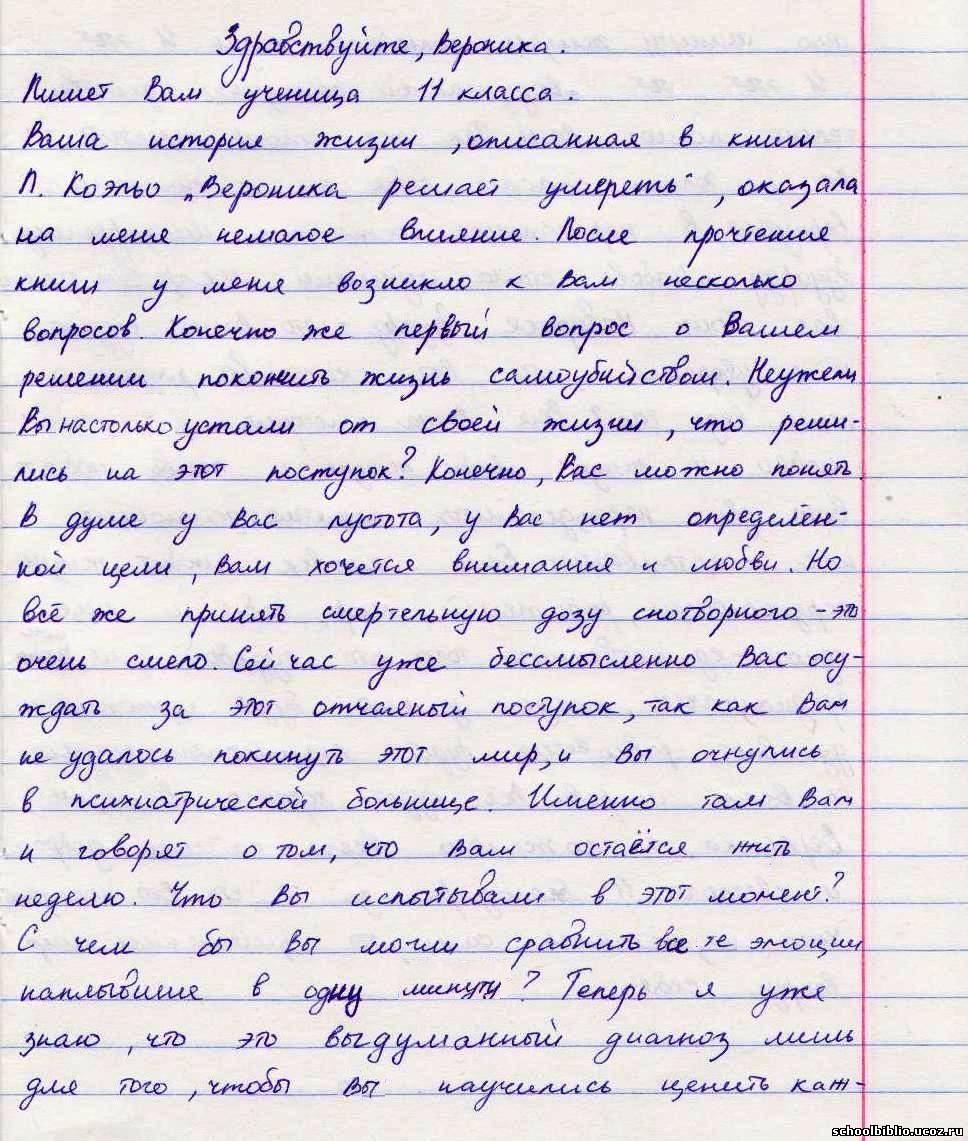 Здравствуйте, Вероника.
Пишет Вам ученица 11 класса.
Ваша история жизни, описанная в книги
П. Коэльо „Вероника решает умереть“, оказала
на меня немалое влияние. После прочтения
книги у меня возникло к Вам несколько
вопросов. Конечно же первый вопрос о Вашем
решении покончить жизнь самоубийством. Неужели
Вы настолько устали от своей жизни, что реши-
лись на этот поступок? Конечно, Вас можно понять.
В душе у Вас пустота, у Вас нет определён-
ной цели, Вам хочется внимания и любви. Но
всё же принять смертельную дозу снотворного – это
очень смело. Сейчас уже бессмысленно Вас осу-
ждать за этот отчаяный поступок, так как Вам
не удалось покинуть этот мир, и Вы очнулись
в психиатрической больнице. Именно там Вам
и говорят о том, что Вам остаётся жить
неделю. Что Вы испытывали в этот момент?
С чем бы Вы могли сравнить все те эмоции
наплывшие в одну минуту? Теперь я уже
знаю, что это выдуманный диагноз лишь
для того, чтобы Вы научились ценить каж-
schoolbiblio.ucoz.ru